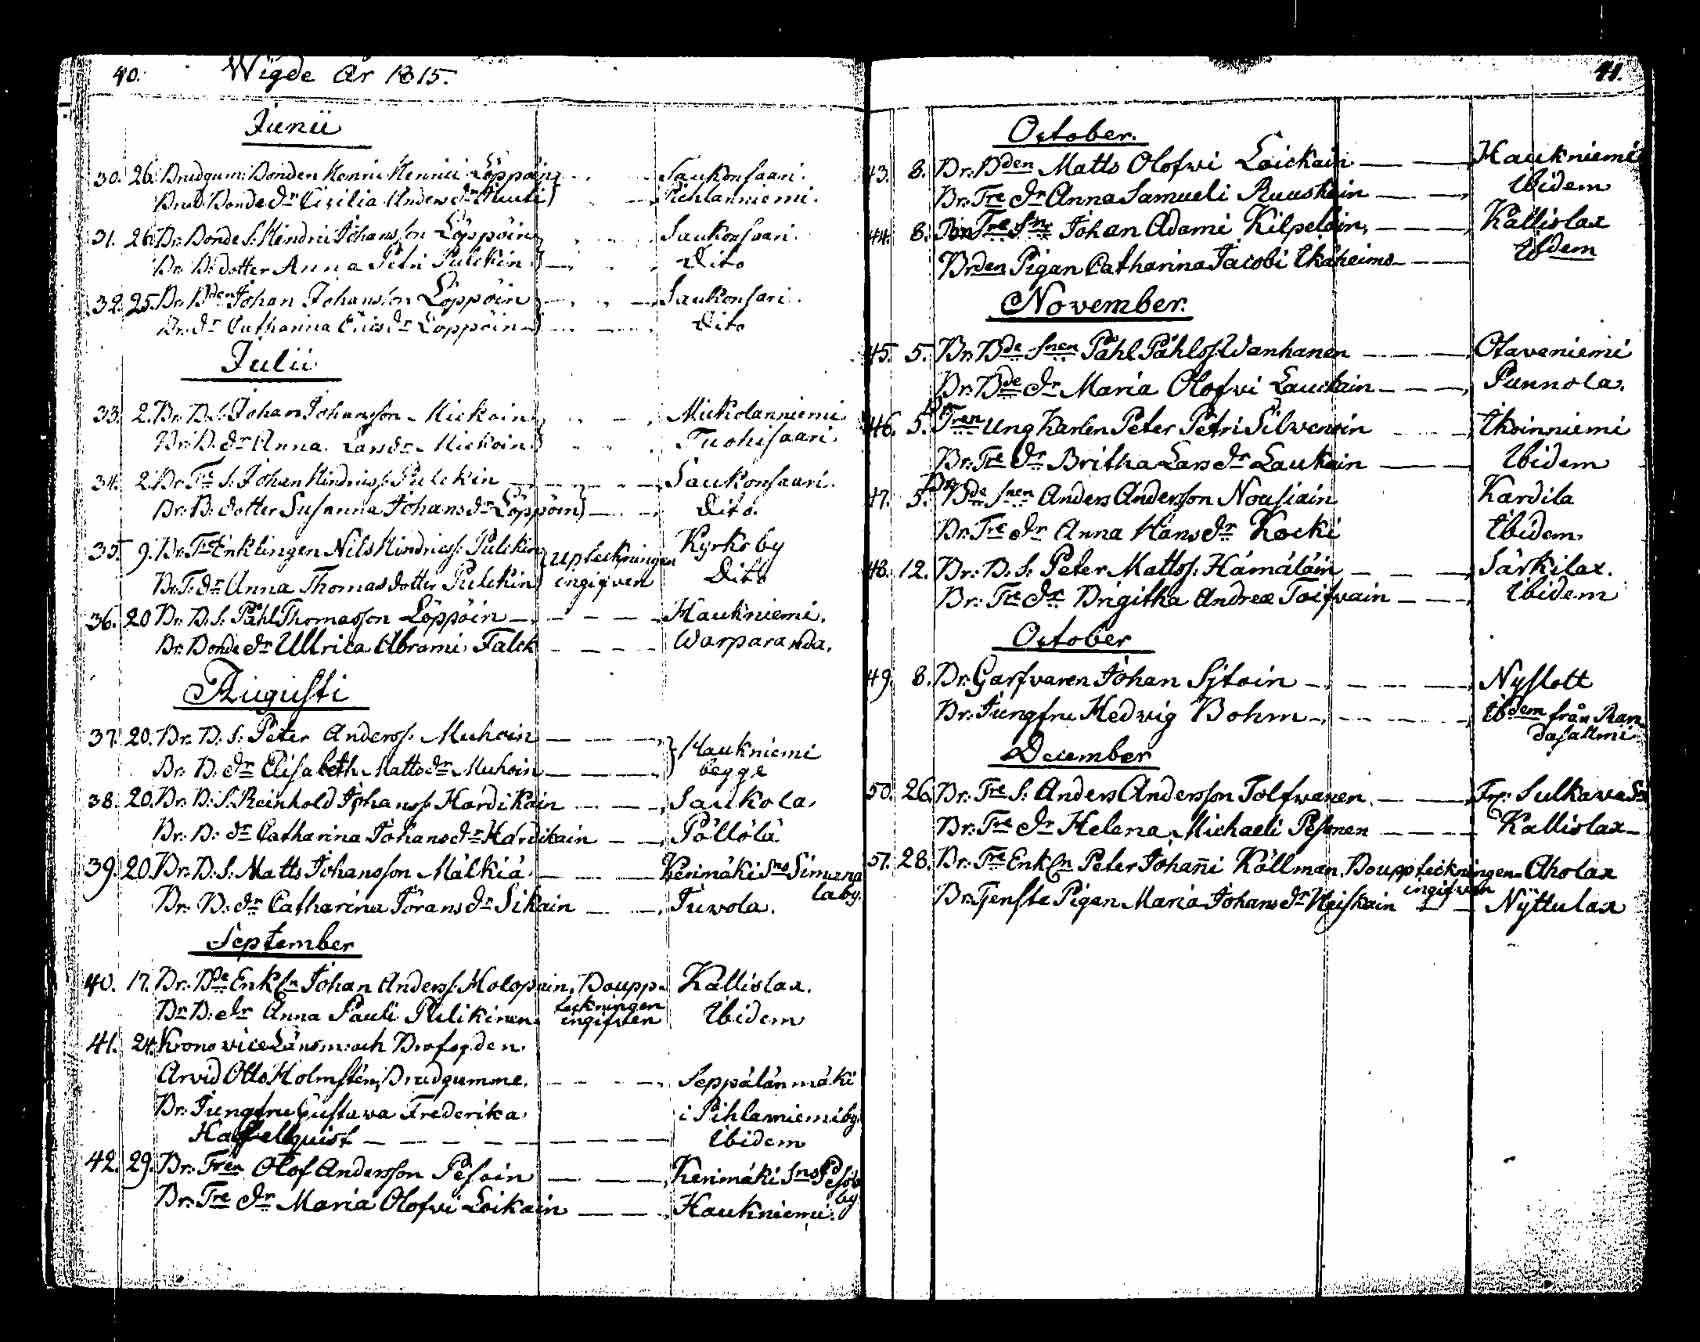 40. Wigde År 1815.
Junii
30. 26. Brudgum: Bonden Henric Henrici Löppöin Saukonsaari.
Brud Bonde dr Cicilia Anders dr Pihlanniemi.
31. 26. Br. Bonde S. Hindric Johansson Löppöin Saukonsaari.
Br: B: dotter Anna Petri Pulckin Dito
32. 25. Br. Bden Johan Johansson Löppöin Saukonsari.
Br. dr Catharina Erics dr Löppöin Dito
Julii
33. 2. Br. B. S. Johan Johansson Mickoin Mickolanniemi
Br. B. dr Anna Lars dr Mickoin Tuohisaari.
34. 2. Br. Te S. Johan Hindricss. Pulckin Saukonsaari.
Br. B. dotter Susanna Johans dr Löppöin Dito.
35. 9. Br. Tre Enklingen Nils Hindricss. Pulckin Upteckningen Kyrkoby
Br. T. dr Anna Thomas dotter Pulckin ingifven Dito
36. 20 Br. B. S. Påhl Thomasson Löppöin Haukniemi.
Br. Bonde dr Ullrica Abrami Falck Warparanda.
Augusti
37. 20. Br. B. S. Peter Anderss. Muhoin Haukniemi
Br. B. dr Elisabeth Matts dr Muhoin begge
38. 20. Br. B. S. Reinhold Johanss. Hardikain Saukola.
Br. B. dr Catharina Johans dr Hardikain Pöllölä
39. 20. Br. B. S. Matts Johansson Mälkiä Kerimäki Sns Simuna
laby.
Br. B. dr Catharina Jörans dr Sikain Juvola.
September
40. 17. Br. Bde Enkln Johan Anderss. Holopain, Boupp- Kallislax.
Br B. dr Anna Pauli Pulikinen teckningen Ibidem
ingifven
41. 24. Krono vice Länsm: och Brofogden
Arvid Otto Holmstén, Brudgumme. Seppälänmäki
Br. Jungfru Gustava Frederika i Pihlaniemi by.
Hasselquist Ibidem
42. 29. Br. Tren Olof Andersson Pesoin Kerimäki Sns
by
Br. Tre dr Maria Olofvi Loikain Haukniemi.
41.
October.
43. 8. Br. Bden Matts Olofvi Loickain Haukniemi
Br. Tre dr Anna Samueli Ruuskain Ibidem
44. 8. Tre Sn Johan Adami Kilpeläin, Kallislax
Brden Pigan Catharina Jacobi Ibidem
November.
45. 5. Br. Bde Snen Påhl Påhlss. Wanhanen Otavaniemi
Br. Bde dr Maria Olofvi Lauckain Punnola.
46. 5. Br Tren Ung Karlen Peter Petri Silvenoin Ikoinniemi
Br. Tre dr Britha Lars dr Laukain Ibidem
47. 5. Br Bde Snen Anders Andersson Nousiain Kardila
Br. Tre dr Anna Hans dr Kocki Ibidem.
48. 12. Br. B. S. Peter Mattss. Hämäläin Särkilax.
Br. Tre dr Brigitha Andreæ Toifvain Ibidem
October
49. 8. Br. Garfvaren Johan Sitoin Nyslott
Br. Jungfru Hedvig Bohm Ibdem från Ran
dasallmi.
December
50. 26. Br. Tre S. Anders Andersson Tolfvanen Fr: Sulkava Sn
Br. Tre dr Helena Michaeli Pesonen Kallislax
51. 28. Br. Tre Enkln Peter Johañi Källman, Bouppteckningen Aholax
ingifven
Br. Tjenste Pigan Maria Johans dr Heiskain Nyttulax